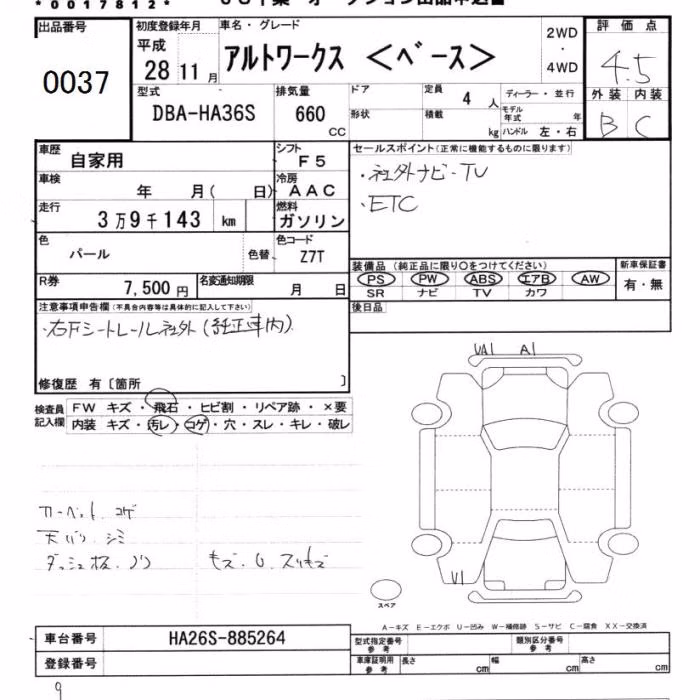 *0017812*
出品番号 初度登録年月 車名・グレード 2WD・4WD 評価点
0037 平成 28 11月 アルトワークス <ベース> 4.5
型式 排気量 ドア 定員 4人 ディーラー・並行 外装 内装
DBA-HA36S 660 CC 形状 積載 kg モデル年式 年 ハンドル 左・右 B C
車歴 自家用 シフト F5 セールスポイント(正常に機能するものに限ります)
車検 年 月( 日) 冷房 AAC ・社外ナビ・TV
走行 3万9千143 km 燃料 ガソリン ・ETC
色 パール 色替 色コード Z7T
装備品(純正品に限り○をつけてください) 新車保証書
R券 7,500円 名変通知期限 月 日 PS PW ABS エアB AW 有・無
SR ナビ TV カワ
注意事項申告欄(不具合内容等は具体的に記入して下さい) 後日品
・右Fシートレール社外(純正車内)
修復歴 有〔箇所 〕
検査員記入欄 FW キズ・飛石・ヒビ割・リペア跡・×要
内装 キズ・汚レ・コゲ・穴・スレ・キレ・破レ
UA1 A1
カーペット、コゲ
天バリ、シミ
V1
スペア
A-キズ E-エクボ U-凹み W-補修跡 S-サビ C-腐食 XX-交換済
車台番号 HA26S-885264 型式指定番号 参考 類別区分番号 参考
登録番号 車庫証明用 参考 長さ cm 幅 cm 高さ cm
9